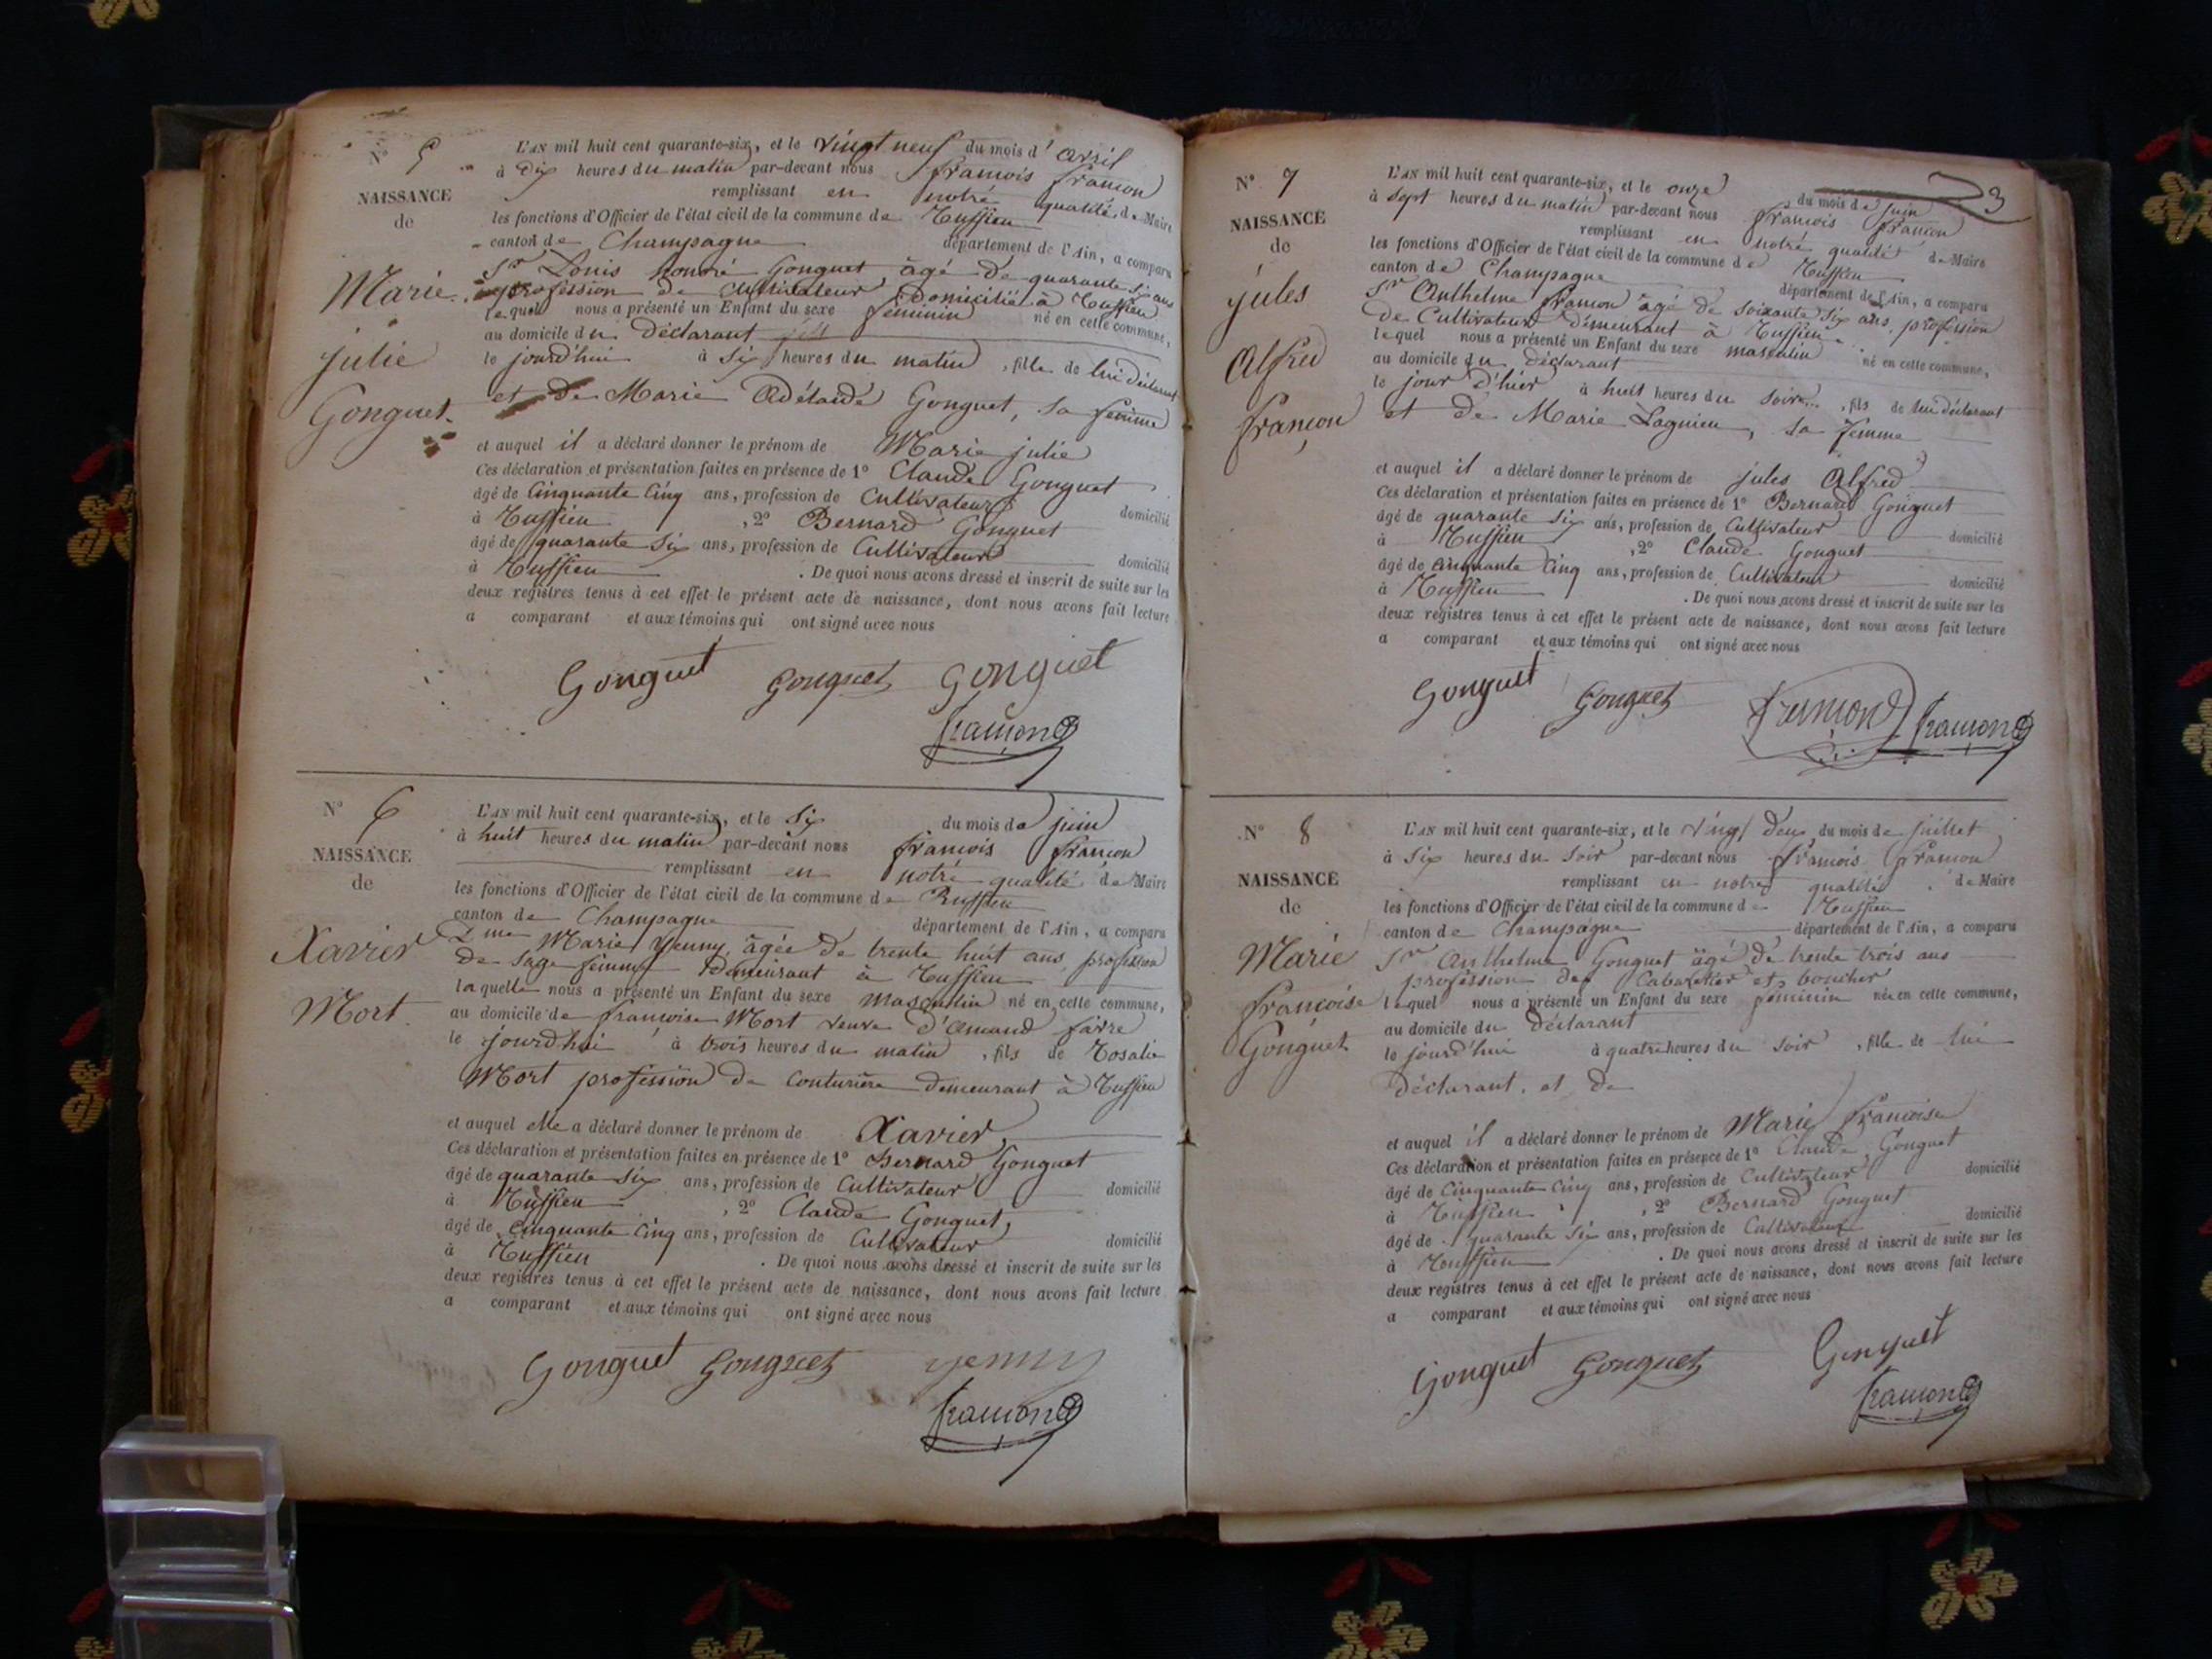 N° 5
NAISSANCE
de
Marie
julie
Gonguet.
L'AN mil huit cent quarante-six, et le vingt neuf du mois d' avril
à dix heures du matin par-devant nous françois françon
remplissant en notre qualité de Maire
les fonctions d'Officier de l'état civil de la commune de Ruffieu
canton de Champagne département de l'Ain, a comparu
Sr Louis honoré Gonguet, âgé de quarante six ans
profession de cultivateur domicilié à Ruffieu
lequel nous a présenté un Enfant du sexe féminin né en cette commune,
au domicile du Déclarant
le jourd'hui à six heures du matin, fille de lui déclarant
et de Marie Adélaide Gonguet, sa femme
et auquel il a déclaré donner le prénom de Marie julie
Ces déclaration et présentation faites en présence de 1° Claude Gonguet
âgé de Cinquante Cinq ans, profession de Cultivateur domicilié
à Ruffieu, 2° Bernard Gonguet
âgé de quarante Six ans, profession de Cultivateur domicilié
à Ruffieu. De quoi nous avons dressé et inscrit de suite sur les
deux registres tenus à cet effet le présent acte de naissance, dont nous avons fait lecture
a comparant et aux témoins qui ont signé avec nous
Gonguet Gonguet Gonguet
françon
N° 6
NAISSANCE
de
Xavier
Mort.
L'AN mil huit cent quarante-six, et le Six du mois de juin
à huit heures du matin par-devant nous françois françon
remplissant en notre qualité de Maire
les fonctions d'Officier de l'état civil de la commune de Ruffieu
canton de Champagne département de l'Ain, a comparu
Dme Marie Yenny, âgée de trente huit ans, profession
de Sage femme demeurant à Ruffieu
laquelle nous a présenté un Enfant du sexe masculin né en cette commune,
au domicile de françoise Mort veuve d'Amand favre
le jourd'hui à trois heures du matin, fils de Rosalie
Mort profession de Couturière demeurant à Ruffieu
et auquel elle a déclaré donner le prénom de Xavier
Ces déclaration et présentation faites en présence de 1° Bernard Gonguet
âgé de quarante six ans, profession de Cultivateur domicilié
à Ruffieu, 2° Claude Gonguet,
âgé de Cinquante Cinq ans, profession de Cultivateur domicilié
à Ruffieu. De quoi nous avons dressé et inscrit de suite sur les
deux registres tenus à cet effet le présent acte de naissance, dont nous avons fait lecture
a comparant et aux témoins qui ont signé avec nous
Gonguet Gonguet yenny
françon
3
N° 7
NAISSANCE
de
jules
Alfred
françon
L'AN mil huit cent quarante-six, et le onze du mois de juin
à Sept heures du matin par-devant nous françois françon
remplissant en notre qualité de Maire
les fonctions d'Officier de l'état civil de la commune de Ruffieu
canton de Champagne département de l'Ain, a comparu
Sr Anthelme françon âgé de soixante six ans, profession
de Cultivateur demeurant à Ruffieu
lequel nous a présenté un Enfant du sexe masculin né en cette commune,
au domicile du déclarant
le jour d'hier à huit heures du soir, fils de lui déclarant
et de Marie Lagnieu, sa femme
et auquel il a déclaré donner le prénom de jules Alfred
Ces déclaration et présentation faites en présence de 1° Bernard Gonguet
âgé de quarante six ans, profession de Cultivateur domicilié
à Ruffieu, 2° Claude Gonguet
âgé de Cinquante Cinq ans, profession de Cultivateur domicilié
à Ruffieu. De quoi nous avons dressé et inscrit de suite sur les
deux registres tenus à cet effet le présent acte de naissance, dont nous avons fait lecture
a comparant et aux témoins qui ont signé avec nous
Gonguet Gonguet françon
N° 8
NAISSANCE
de
Marie
françoise
Gonguet
L'AN mil huit cent quarante-six, et le vingt deux du mois de juillet
à Six heures du Soir par-devant nous françois françon
remplissant en notre qualité de Maire
les fonctions d'Officier de l'état civil de la commune de Ruffieu
canton de Champagne département de l'Ain, a comparu
Sr Anthelme Gonguet âgé de trente trois ans
profession de Cabaretier et boucher
lequel nous a présenté un Enfant du sexe féminin née en cette commune,
au domicile du Déclarant
le jourd'hui à quatre heures du Soir, fille de lui
déclarant, et de
et auquel il a déclaré donner le prénom de Marie françoise
Ces déclaration et présentation faites en présence de 1° Claude Gonguet
âgé de Cinquante Cinq ans, profession de Cultivateur domicilié
à Ruffieu, 2° Bernard Gonguet
âgé de quarante Six ans, profession de Cultivateur domicilié
à Ruffieu. De quoi nous avons dressé et inscrit de suite sur les
deux registres tenus à cet effet le présent acte de naissance, dont nous avons fait lecture
a comparant et aux témoins qui ont signé avec nous
Gonguet Gonguet Gonguet
françon